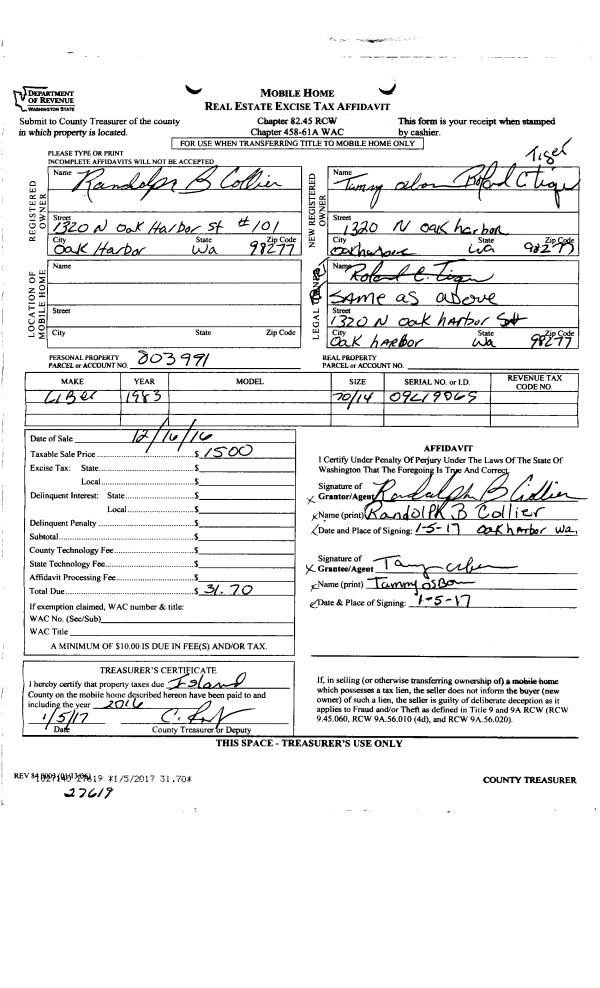 DEPARTMENT
OF REVENUE
WASHINGTON STATE
MOBILE HOME
REAL ESTATE EXCISE TAX AFFIDAVIT
Submit to County Treasurer of the county
in which property is located.
Chapter 82.45 RCW
Chapter 458-61A WAC
This form is your receipt when stamped
by cashier.
FOR USE WHEN TRANSFERRING TITLE TO MOBILE HOME ONLY
PLEASE TYPE OR PRINT
INCOMPLETE AFFIDAVITS WILL NOT BE ACCEPTED
Tiger
REGISTERED OWNER
Name Randolph B Collier
Street 1320 N Oak Harbor St #101
City State Zip Code
Oak Harbor Wa 98277
NEW REGISTERED OWNER
Name Tammy Roland C Tiger
Street 1320 N Oak harbor
City State Zip Code
Wa 98277
LOCATION OF MOBILE HOME
Name
Street
City State Zip Code
LEGAL OWNER
Name Roland C. Tiger
SAME as above
Street 1320 N Oak harbor
City State Zip Code
Oak harbor Wa 98277
PERSONAL PROPERTY
PARCEL or ACCOUNT NO. 803991
REAL PROPERTY
PARCEL or ACCOUNT NO.
MAKE YEAR MODEL SIZE SERIAL NO. or I.D. REVENUE TAX CODE NO.
1983 70/14 09L19065
Date of Sale 12/16/16
Taxable Sale Price $ 1500
Excise Tax: State $
Local $
Delinquent Interest: State $
Local $
Delinquent Penalty $
Subtotal $
County Technology Fee $
State Technology Fee $
Affidavit Processing Fee $
Total Due $ 31.70
If exemption claimed, WAC number & title:
WAC No. (Sec/Sub)
WAC Title
A MINIMUM OF $10.00 IS DUE IN FEE(S) AND/OR TAX.
AFFIDAVIT
I Certify Under Penalty Of Perjury Under The Laws Of The State Of
Washington That The Foregoing Is True And Correct.
Signature of
x Grantor/Agent Randolph B Collier
x Name (print) Randolph B Collier
x Date and Place of Signing: 1-5-17 Oak harbor Wa,
Signature of
x Grantee/Agent
x Name (print) Tammy Osborn
x Date & Place of Signing: 1-5-17
TREASURER'S CERTIFICATE
I hereby certify that property taxes due Island
County on the mobile home described hereon have been paid to and
including the year 2016
1/5/17
Date County Treasurer or Deputy
If, in selling (or otherwise transferring ownership of) a mobile home
which possesses a tax lien, the seller does not inform the buyer (new
owner) of such a lien, the seller is guilty of deliberate deception as it
applies to Fraud and/or Theft as defined in Title 9 and 9A RCW (RCW
9.45.060, RCW 9A.56.010 (4d), and RCW 9A.56.020).
THIS SPACE - TREASURER'S USE ONLY
REV 84 27619 *1/5/2017 31.70*
COUNTY TREASURER
27619